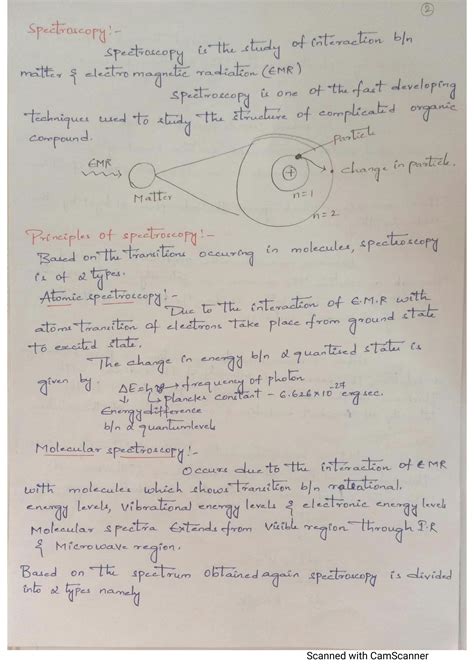 2
Spectroscopy:-
Spectroscopy is the study of interaction b/n
matter & electro magnetic radiation (EMR)
Spectroscopy is one of the fast developing
techniques used to study the structure of complicated organic
compound.
particle
EMR
change in particle.
+
Matter
n=1
n=2
Principles of spectroscopy:-
Based on the transitions occuring in molecules, spectroscopy
is of 2 types.
Atomic spectroscopy:-
Due to the interaction of E.M.R with
atoms transition of electrons take place from ground state
to excited state.
The change in energy b/n 2 quantised states is
given by ΔE=hν → frequency of photon
↳ planckes constant - 6.626×10⁻²⁷ erg sec.
Energy difference
b/n 2 quantum levels
Molecular spectroscopy:-
Occurs due to the interaction of EMR
with molecules which shows transition b/n rotational
energy levels, Vibrational energy levels & electronic energy levels
Molecular spectra Extends from Visible region through I.R
& Microwave region.
Based on the spectrum obtained again spectroscopy is divided
into 2 types namely
Scanned with CamScanner